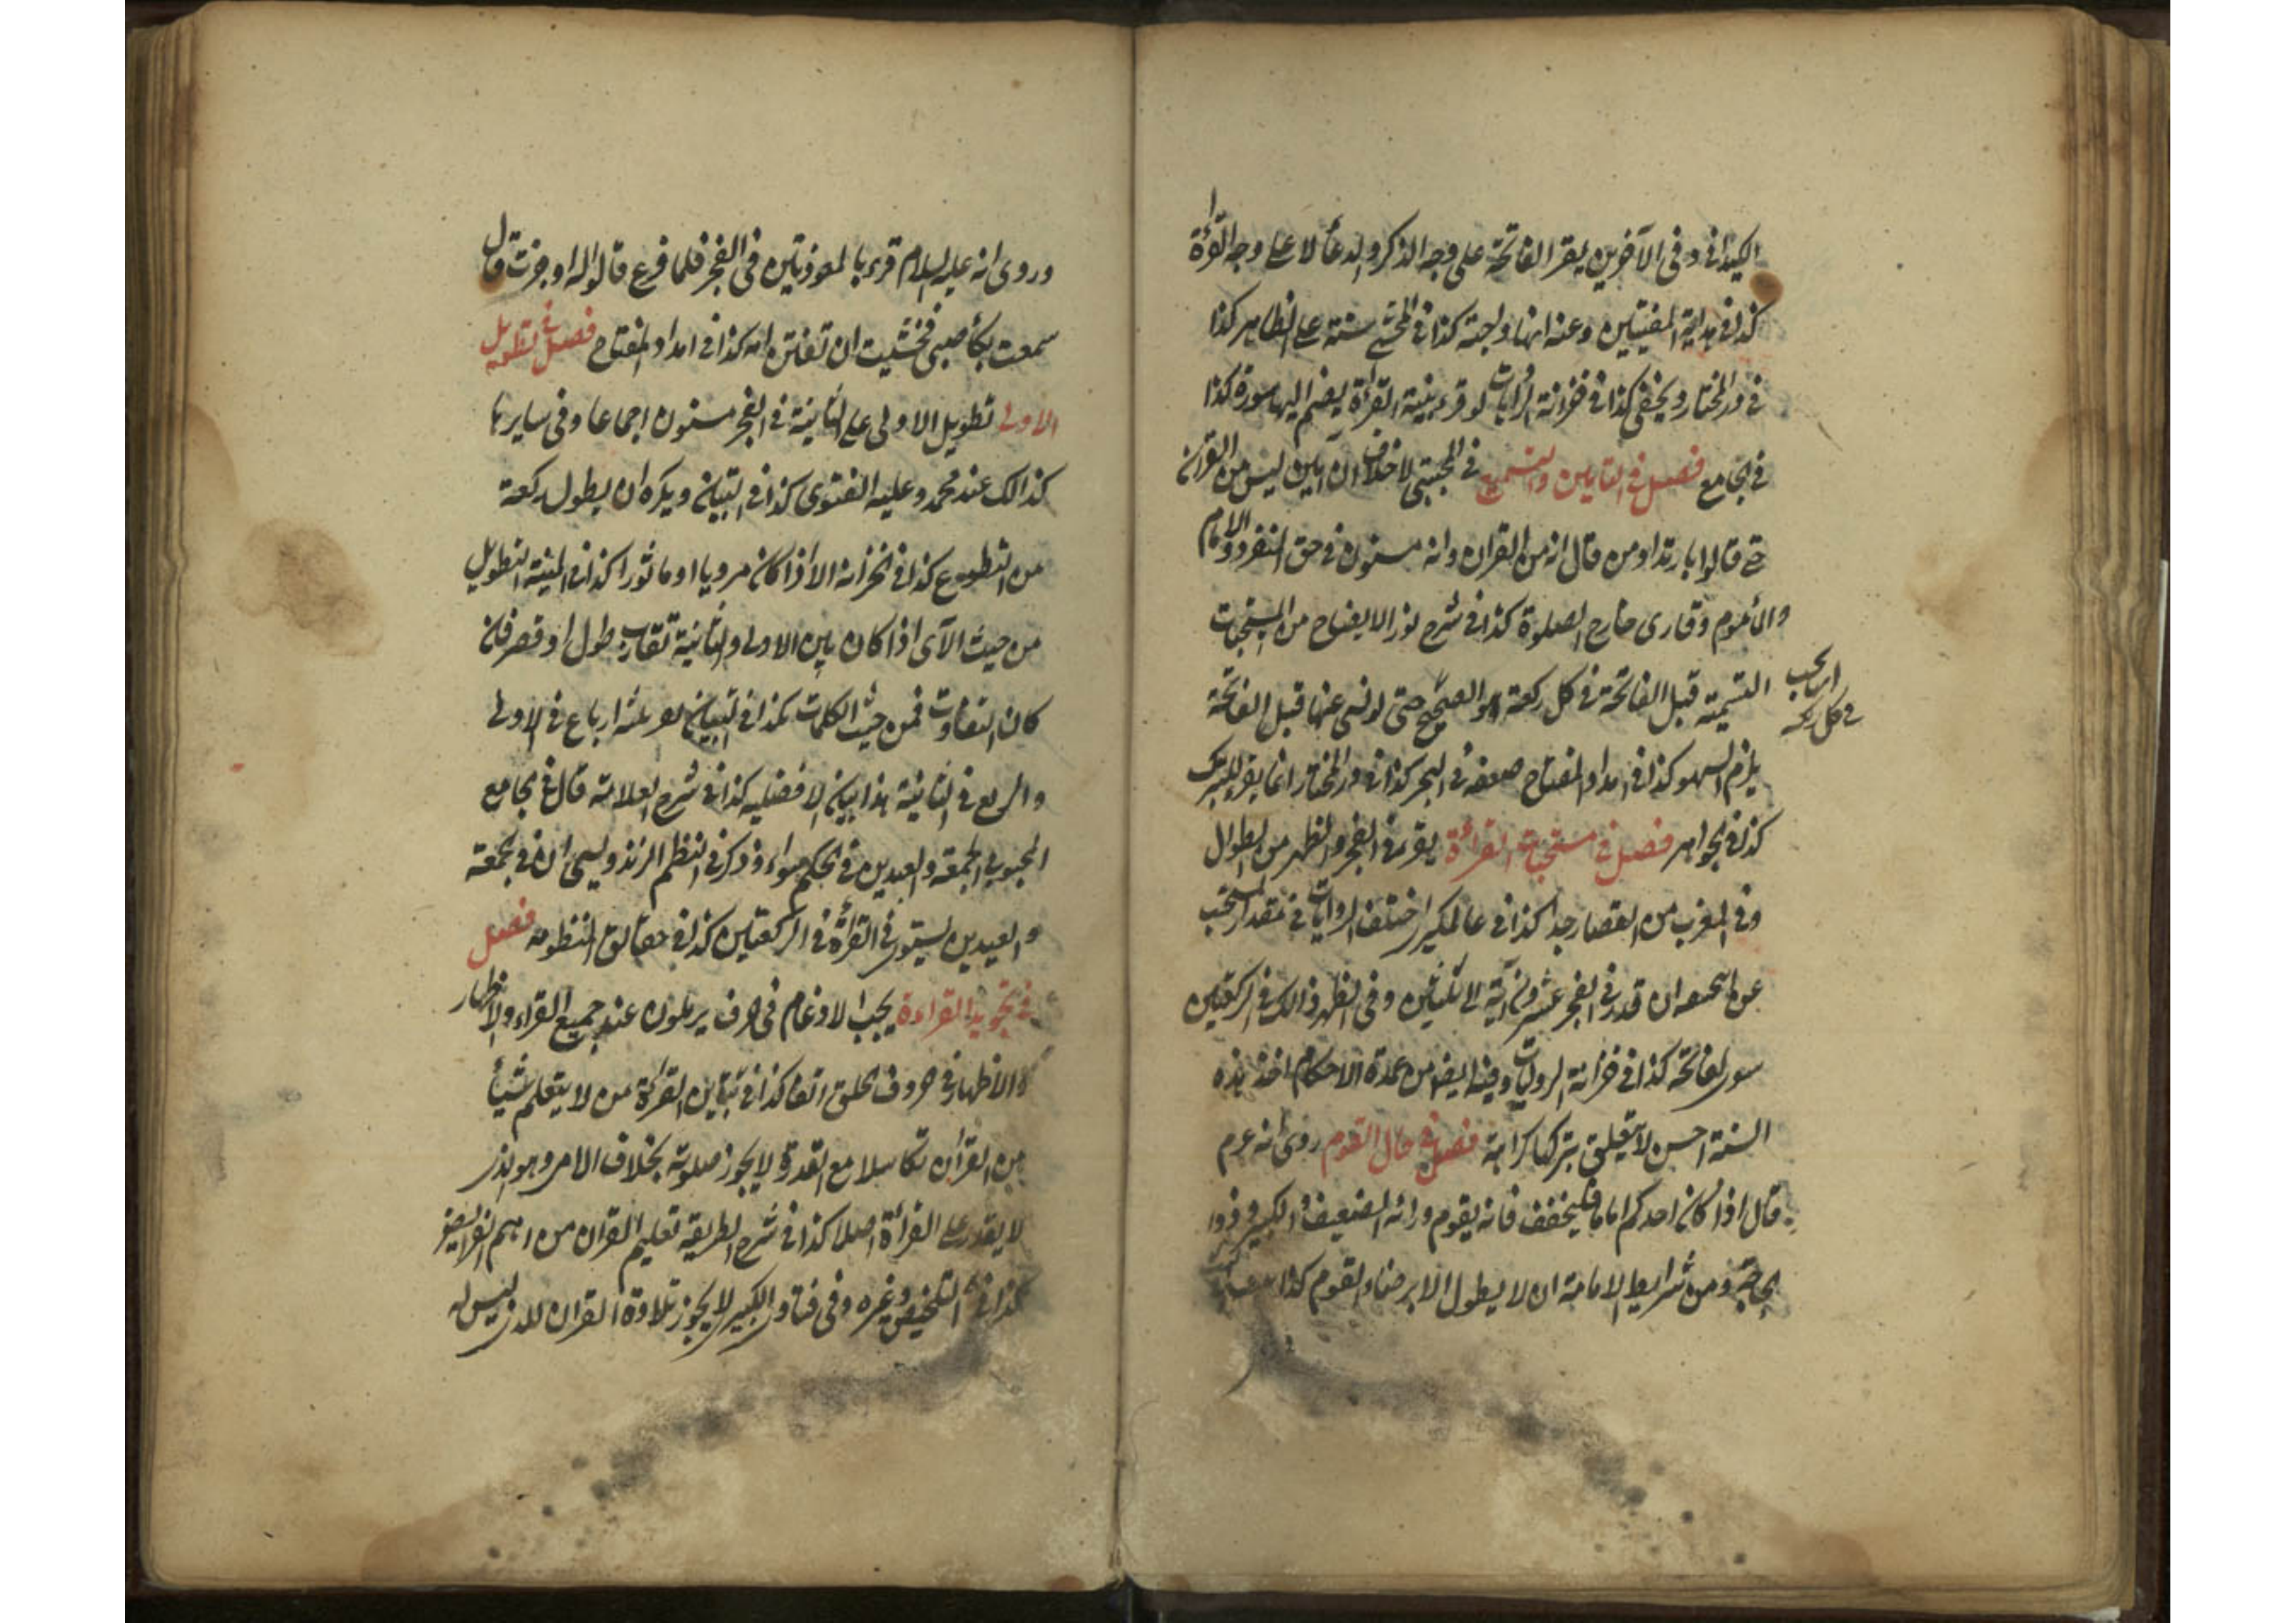 الكيدانى و فى الآخرين يقرا الفاتحة على وجه الذكر والدعأ لا على وجه القرأة
كذا فى هداية المفتيين وعنه انها واجبة كذا فى سنة على الظاهر كذا
فى در المختار ويخفى كذا فى خزانة الروايات لو قرء بنية القرأة يضم اليها سورة كذا
فى الجامع فصل فى التامين والتسميع فى المجتبى لا خلاف ان آمين ليس من القرآن
حتى قالوا بارتداد من قال انه من القران وانه مسنون فى حق المنفرد والامام
والمأموم وقارى خارج الصلوة كذا فى شرح نور الايضاح من المستحبات
التسمية قبل الفاتحة فى كل ركعة هو الصحيح حتى لو نسى عنها قبل الفاتحة
اى يجب
فى كل ركعة
يلزم السهو كذا فى امداد المفتاح ضعفه فى البحر كذا فى در المختار انما يقرء للتبرك
كذا فى الجواهر فصل فى مستحبات القرأة يقرء فى الفجر والظهر من الطوال
وفى المغرب من القصار جدا كذا فى عالمكيرى اختلف الروايات فى مقدار المستحب
ان قدر فى الفجر عشرون آية الى ثلثين وفى الظهر ذالك فى الركعتين
سوى الفاتحة كذا فى خزانة الروايات وفيها ايضا من عمدة الاحكام اخذ هذه
السنة احسن لا يتعلق بتركها كراهة فصل فى حال القوم روى انه عم
قال اذا كان احدكم اماما فليخفف فانه يقوم ورائه الضعيف والكبير وذوا
الحاجة ومن شرايط الامامة ان لا يطول الا برضاء القوم كذا
وروى انه عليه السلام قرء بالمعوذتين فى الفجر فلما فرغ قالوا له اوجزت قال
سمعت بكأ صبى فخشيت ان تفتن امه كذا فى امداد المفتاح فصل فى تطويل
الاولى تطويل الاولى على الثانية فى الفجر مسنون اجماعا وفى سايرها
كذالك عند محمد وعليه الفتوى كذا فى التبيان ويكره ان يطول ركعة
من التطوع كذا فى الخزانة الا اذا كان مرويا او ماثورا كذا فى المنية التطويل
من حيث الآى اذا كان بين الاولى والثانية تقارب طولا وقصرا فان
كان التفاوت فمن حيث الكلمات كذا فى التبيان ثلثة ارباع فى الاولى
والربع فى الثانية هذا بيان الافضلية كذا فى شرح العلامة قال فى الجامع
المحبوبى الجمعة والعيدين فى الحكم سواء وذكر فى النظم الزندويسى ان فى الجمعة
والعيدين يستوى فى القرأة فى الركعتين كذا فى حقائق المنظومه فصل
فى تجويد القراءة يجب الادغام فى حرف يرملون عند جميع القراء والاظهار
والاظهار فى حروف الحلق اتفاقا كذا فى القرأة من لا يتعلم شيأ
من القرأن تكاسلا مع القدرة لا يجوز صلوته بخلاف الامى وهو الذى
لا يقدر على القرأة اصلا كذا فى شرح الطريقة تعليم القران من اهم الفرايض
كذا فى التلخيص وغيره وفى فتاوى الكبير لا يجوز تلاوة القران للذى ليس له